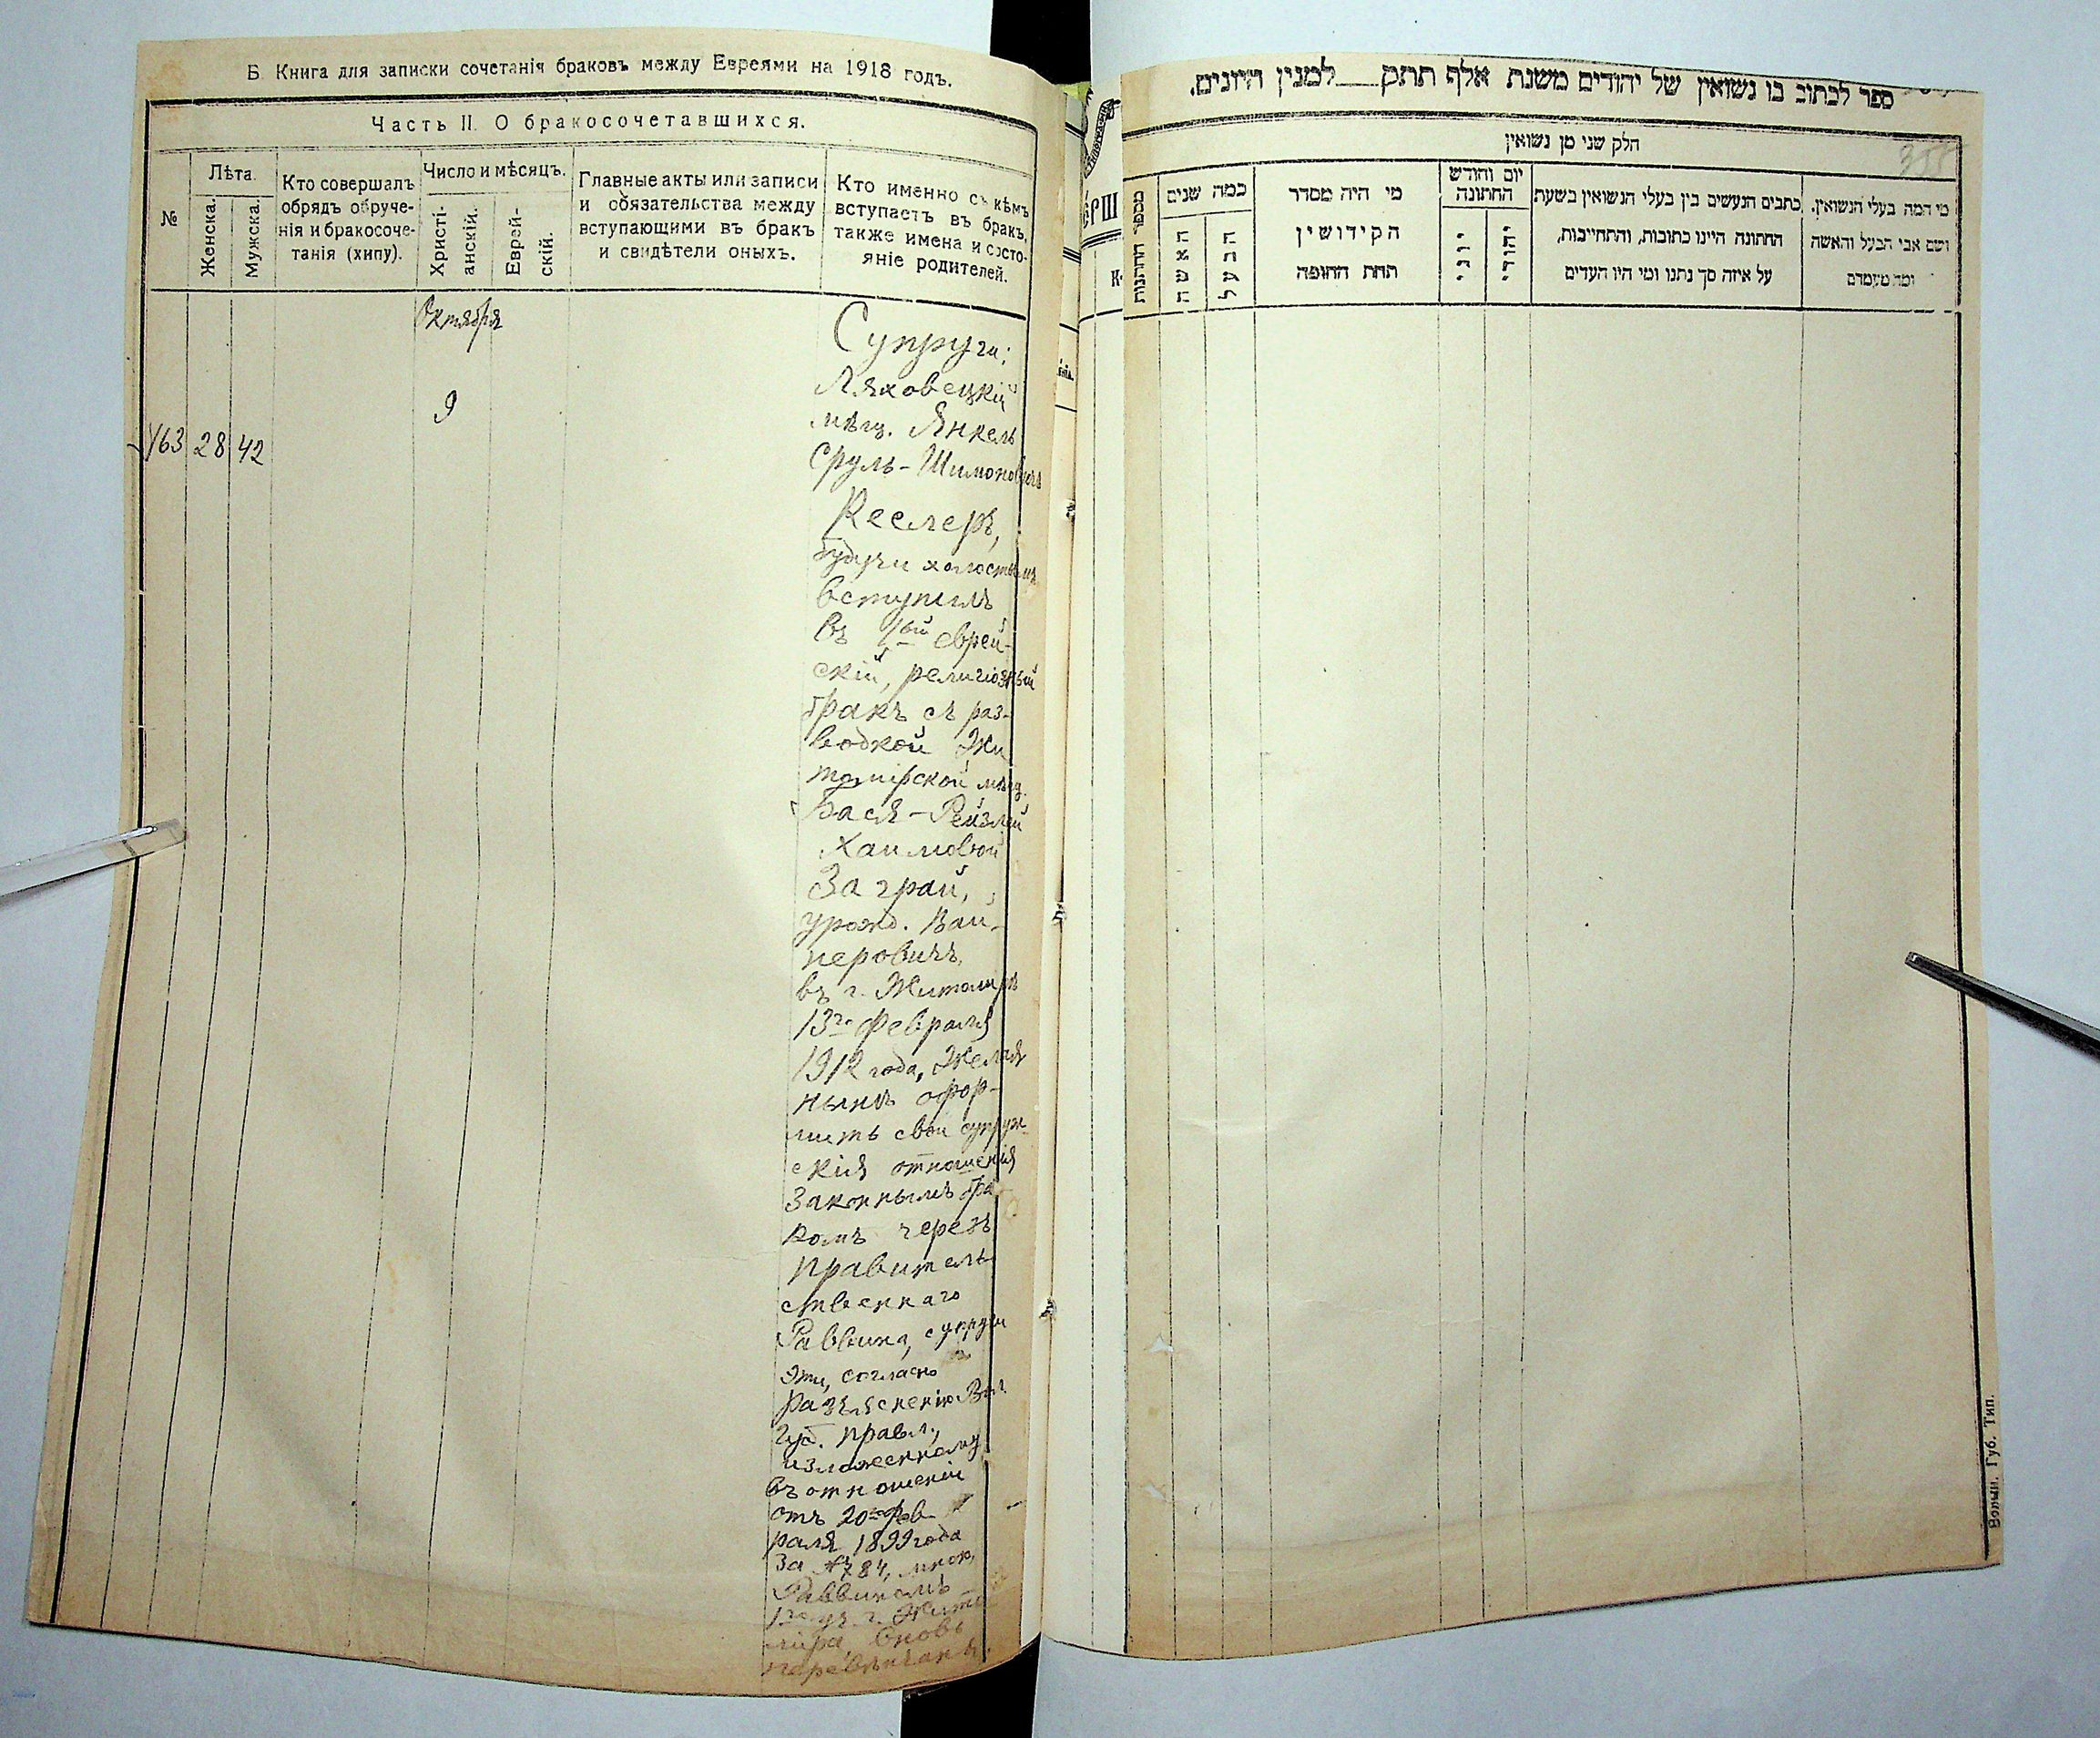 Б. Книга для записки сочетанія браковъ между Евреями на 1918 годъ.
Часть II. О бракосочетавшихся.
№
Лѣта.
Женска.
Мужска.
Кто совершалъ
обрядъ обруче-
нія и бракосоче-
танія (хипу).
Число и мѣсяцъ.
Христі-
анскій.
Еврей-
скій.
Главные акты или записи
и обязательства между
вступающими въ бракъ
и свидѣтели оныхъ.
Кто именно съ кѣмъ
вступаетъ въ бракъ,
также имена и состо-
яніе родителей.
Октября
9
163 28 42
Супруги:
Ляховецкій
мѣщ. Янкель
Сруль-Шимоновичъ
Кеслеръ,
будучи холостымъ
вступилъ
въ 1ый еврей-
скій, религіозный
бракъ съ раз-
водкой Жи
томірской мѣщ.
Бася-Рейзлей
Хаимовой
Заграй,
урожд. Вай-
неровичъ,
въ г. Житомірѣ
13го Февраля
1912 года, Желая
нынѣ офор-
мить свои супруж-
скія отношенія
Законнымъ бра
комъ черезъ
правитель
ственнаго
Раввина, супруги
эти, согласно
разъясненію Вол.
Губ. правл.,
изложенному
въ отношеніи
отъ 20го Фев-
раля 1899 года
За № 784, мною,
Раввиномъ
1го уч. г. Жито
міра, вновь
перевѣнчаны.
ספר לכתוב בו נשואין של יהודים משנת אלף תתק למנין היונים.
חלק שני מן נשואין
מספר החתונות
כמה שנים
האשה
הבעל
מי היה מסדר
הקידושין
תחת החופה
יום וחודש
החתונה
יוני
יהודי
כתבים הנעשים בין בעלי הנשואין בשעת
החתונה היינו כתובות, והתחייבות,
על איזה סך נתנו ומי היו העדים
מי המה בעלי הנשואין,
ושם אבי הבעל והאשה
ומה מעמדם
Волын. Губ. Тип.